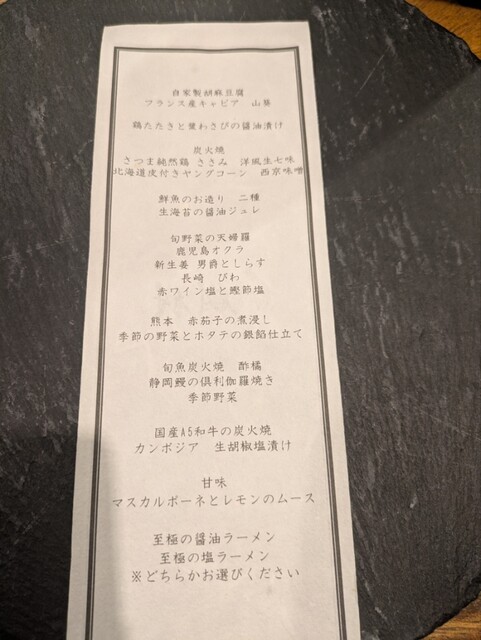 自家製胡麻豆腐
フランス産キャビア　山葵
鶏たたきと葉わさびの醤油漬け
炭火焼
さつま純然鶏 ささみ　洋風生七味
北海道皮付きヤングコーン　西京味噌
鮮魚のお造り　二種
生海苔の醤油ジュレ
旬野菜の天婦羅
鹿児島オクラ
新生姜 男爵としらす
長崎　びわ
赤ワイン塩と鰹節塩
熊本　赤茄子の煮浸し
季節の野菜とホタテの銀餡仕立て
旬魚炭火焼　酢橘
静岡鰻の倶利伽羅焼き
季節野菜
国産A5和牛の炭火焼
カンボジア　生胡椒塩漬け
甘味
マスカルポーネとレモンのムース
至極の醤油ラーメン
至極の塩ラーメン
※どちらかお選びください